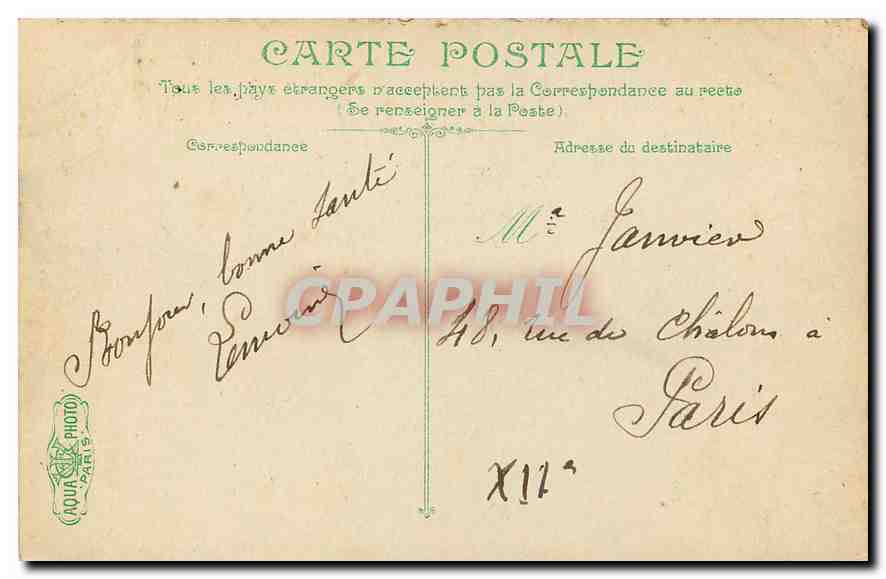 CARTE POSTALE
Tous les pays étrangers n'acceptent pas la Correspondance au recto
(Se renseigner à la Poste).
Correspondance
Adresse du destinataire
Bonjour, bonne santé
Mr Janvier
48, rue de Châlons à
Paris
XIIe
CPAPHIL
AQUA PHOTO
PARIS